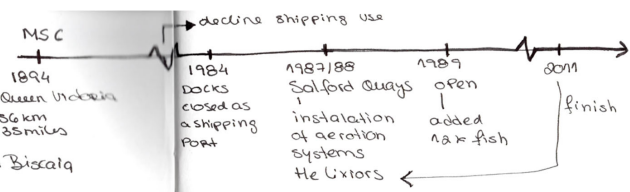 decline shipping use
MSC
1894
Queen Victoria
56 km
35 miles
Biscaia
1984
Docks
closed as
a shipping
Port
1987/88
Salford Quays
instalation
of aeration
systems
Helixiors
1989
open
added
12x fish
2011
finish